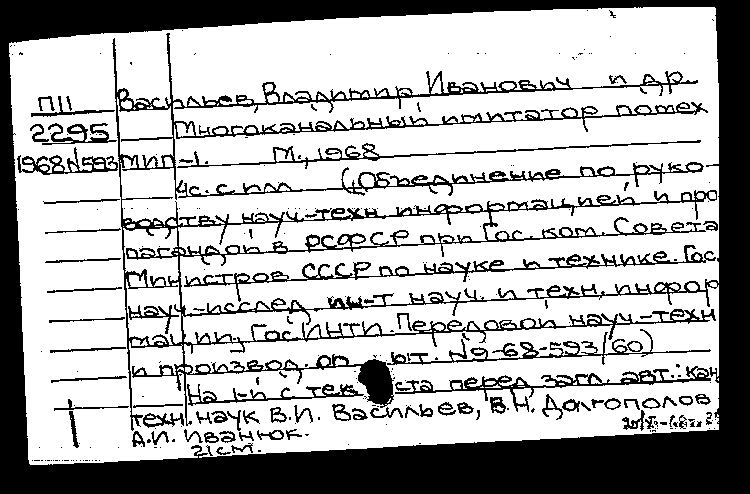 П11 Васильев, Владимир Иванович и др.
2295 Многоканальный имитатор помех
1968 N593 МИП-1. М., 1968
4с. с илл (Объединение по руко-
водству науч.-техн. информацией и про
пагандой в РСФСР при Гос. ком. Совета
Министров СССР по науке и технике. Гос.
науч.-исслед. ин-т науч. и техн. инфор
мации. ГосИНТИ. Передовой науч.-техн
и производ. оп ыт. N9-68-593/60)
На 1-й с тек ста перед загл. авт.: кан
техн. наук В.И. Васильев, В.Н. Долгополов
А.И. Иванюк.
21см.